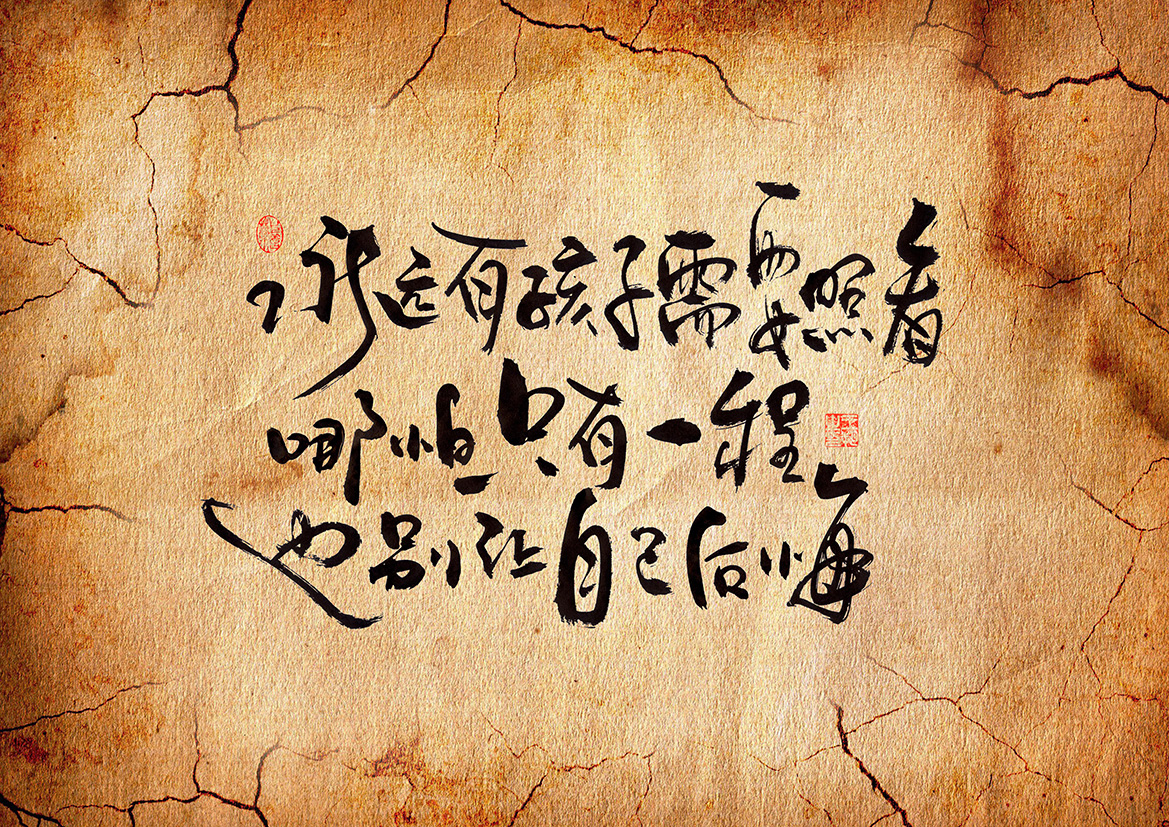 永远有孩子需要照看
哪怕只有一程
也别让自己后悔